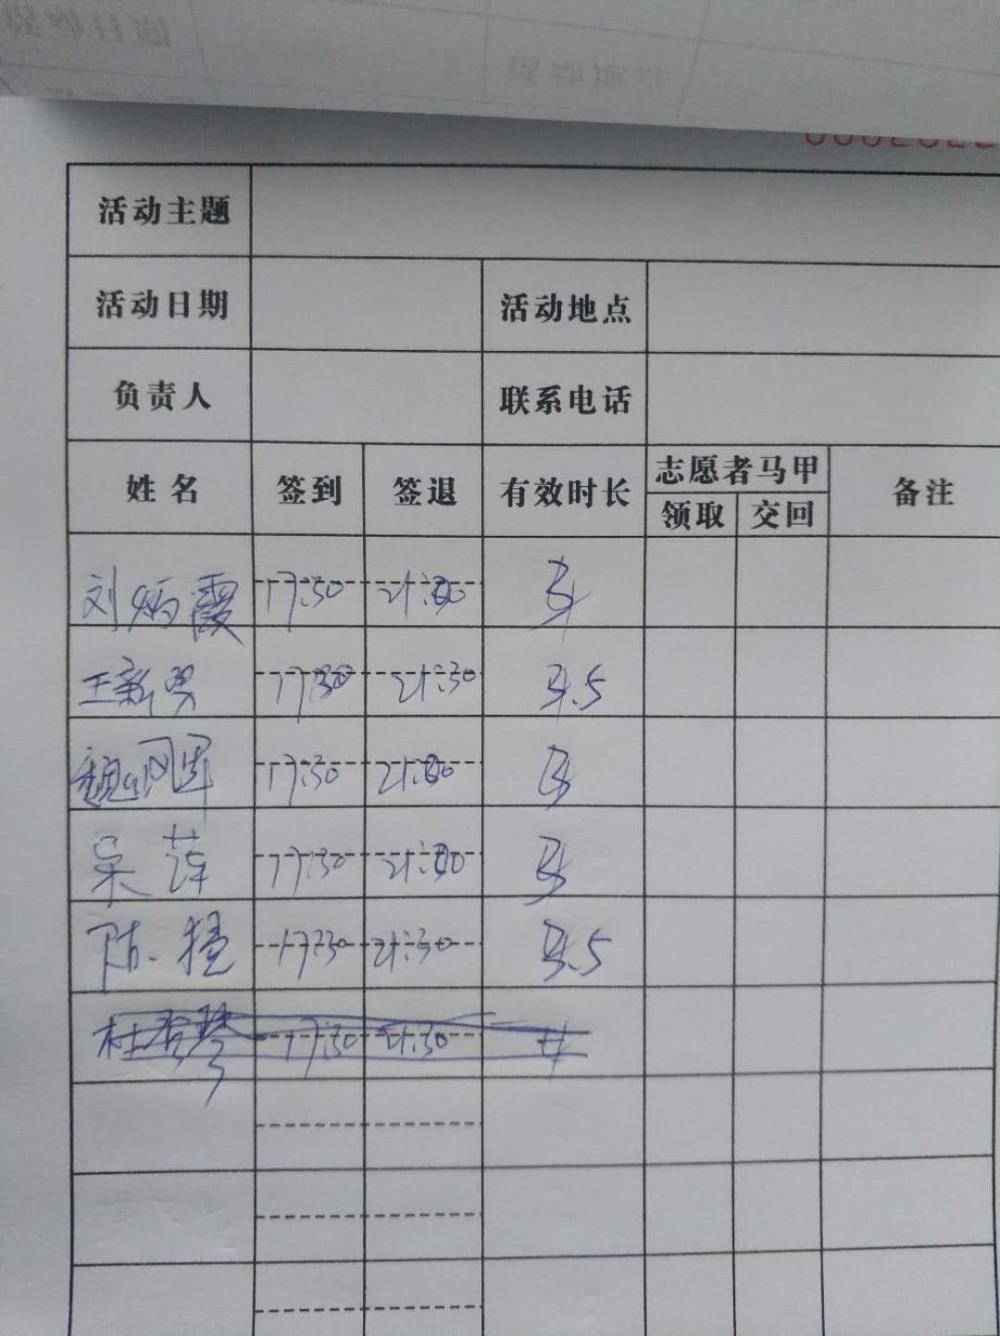 活动主题
活动日期 活动地点
负责人 联系电话
姓名 签到 签退 有效时长 志愿者马甲 备注
领取 交回
刘炳霞 17:30 21:00
17:30 21:30
17:30 21:00
吴萍 17:30 21:00
陈捷 17:30 21:30
杜香琴 17:30 21:30 4